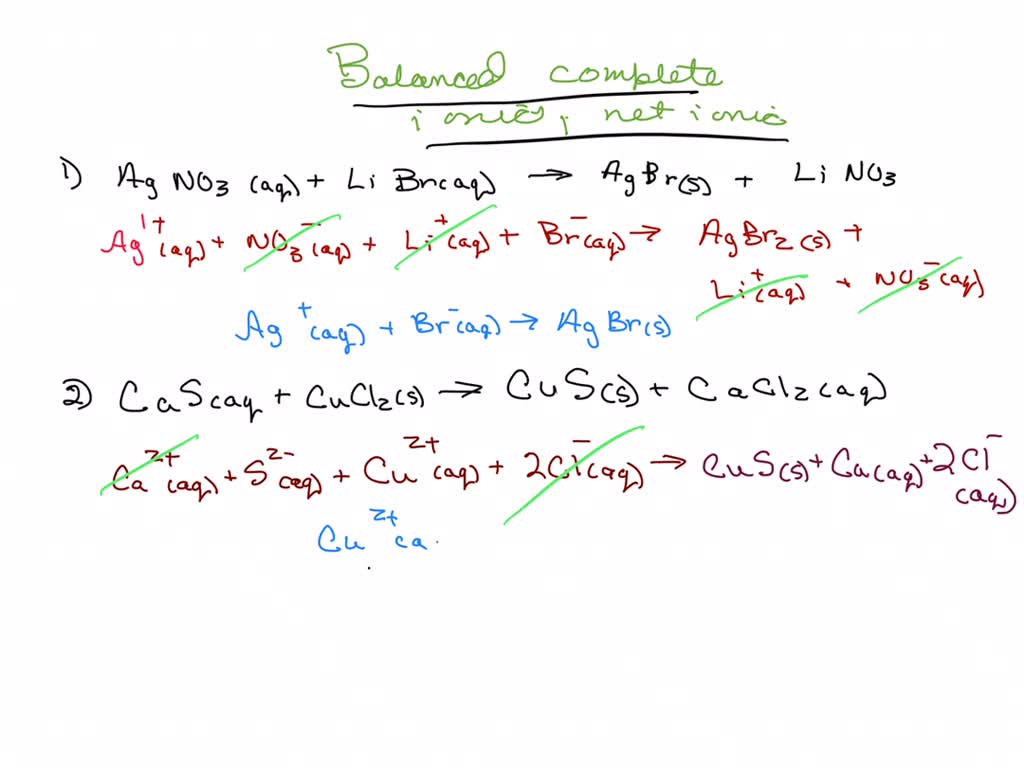 Balanced complete
ionic, net ionic
1) AgNO₃(aq) + LiBr(aq) → AgBr(s) + LiNO₃
Ag¹⁺(aq) + NO₃⁻(aq) + Li⁺(aq) + Br⁻(aq) → AgBr₂(s) +
Li⁺(aq) + NO₃⁻(aq)
Ag⁺(aq) + Br⁻(aq) → AgBr(s)
2) CaS(aq + CuCl₂(s) → CuS(s) + CaCl₂(aq)
Ca²⁺(aq) + S²⁻(aq) + Cu²⁺(aq) + 2Cl⁻(aq) → CuS(s) + Ca(aq) + 2Cl⁻
(aq)
Cu²⁺ca.